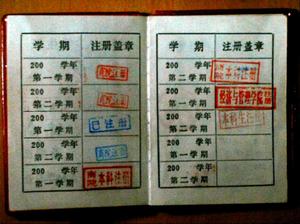 学期 注册盖章
200 学年
第一学期
200 学年
第二学期
200 学年
第一学期 已注册
200 学年
第二学期
200 学年
第一学期 本科注册
学期 注册盖章
200 学年
第二学期 本科注册
200 学年
第一学期 经济与管理学院
200 学年
第二学期 本科生注册
200 学年
第一学期
200 学年
第二学期